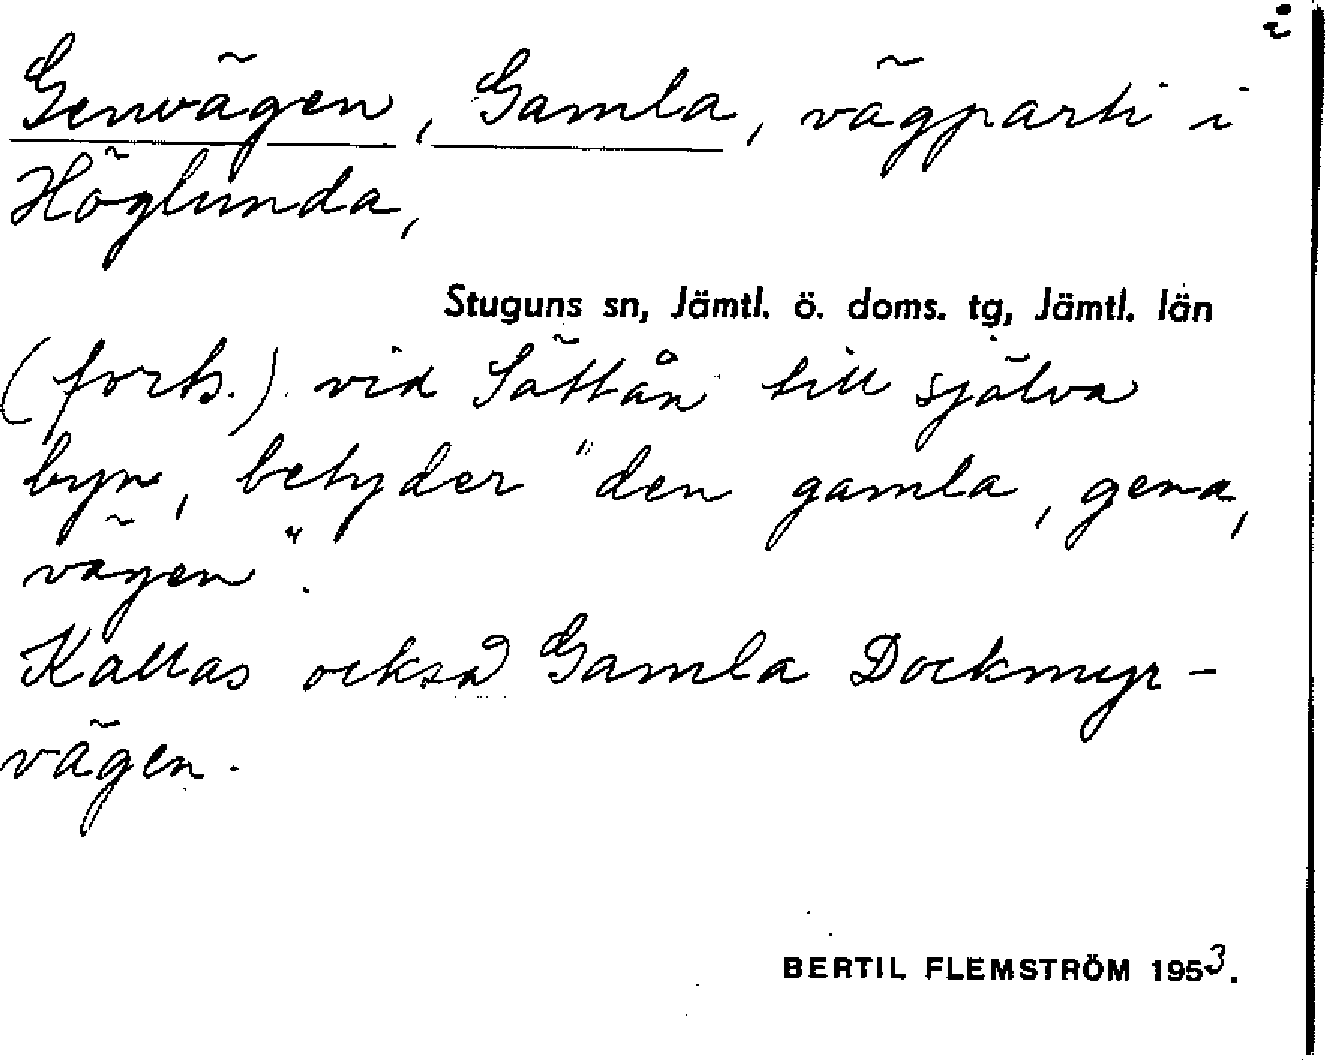 i
Genvägen, Gamla, vägparti i
Höglunda,
Stuguns sn, Jämtl. ö. doms. tg, Jämtl. län
(forts.) vid Sättån till själva
byn, betyder "den gamla, gena,
vägen".
Kallas också Gamla Dockmyr-
vägen.
BERTIL FLEMSTRÖM 1953.